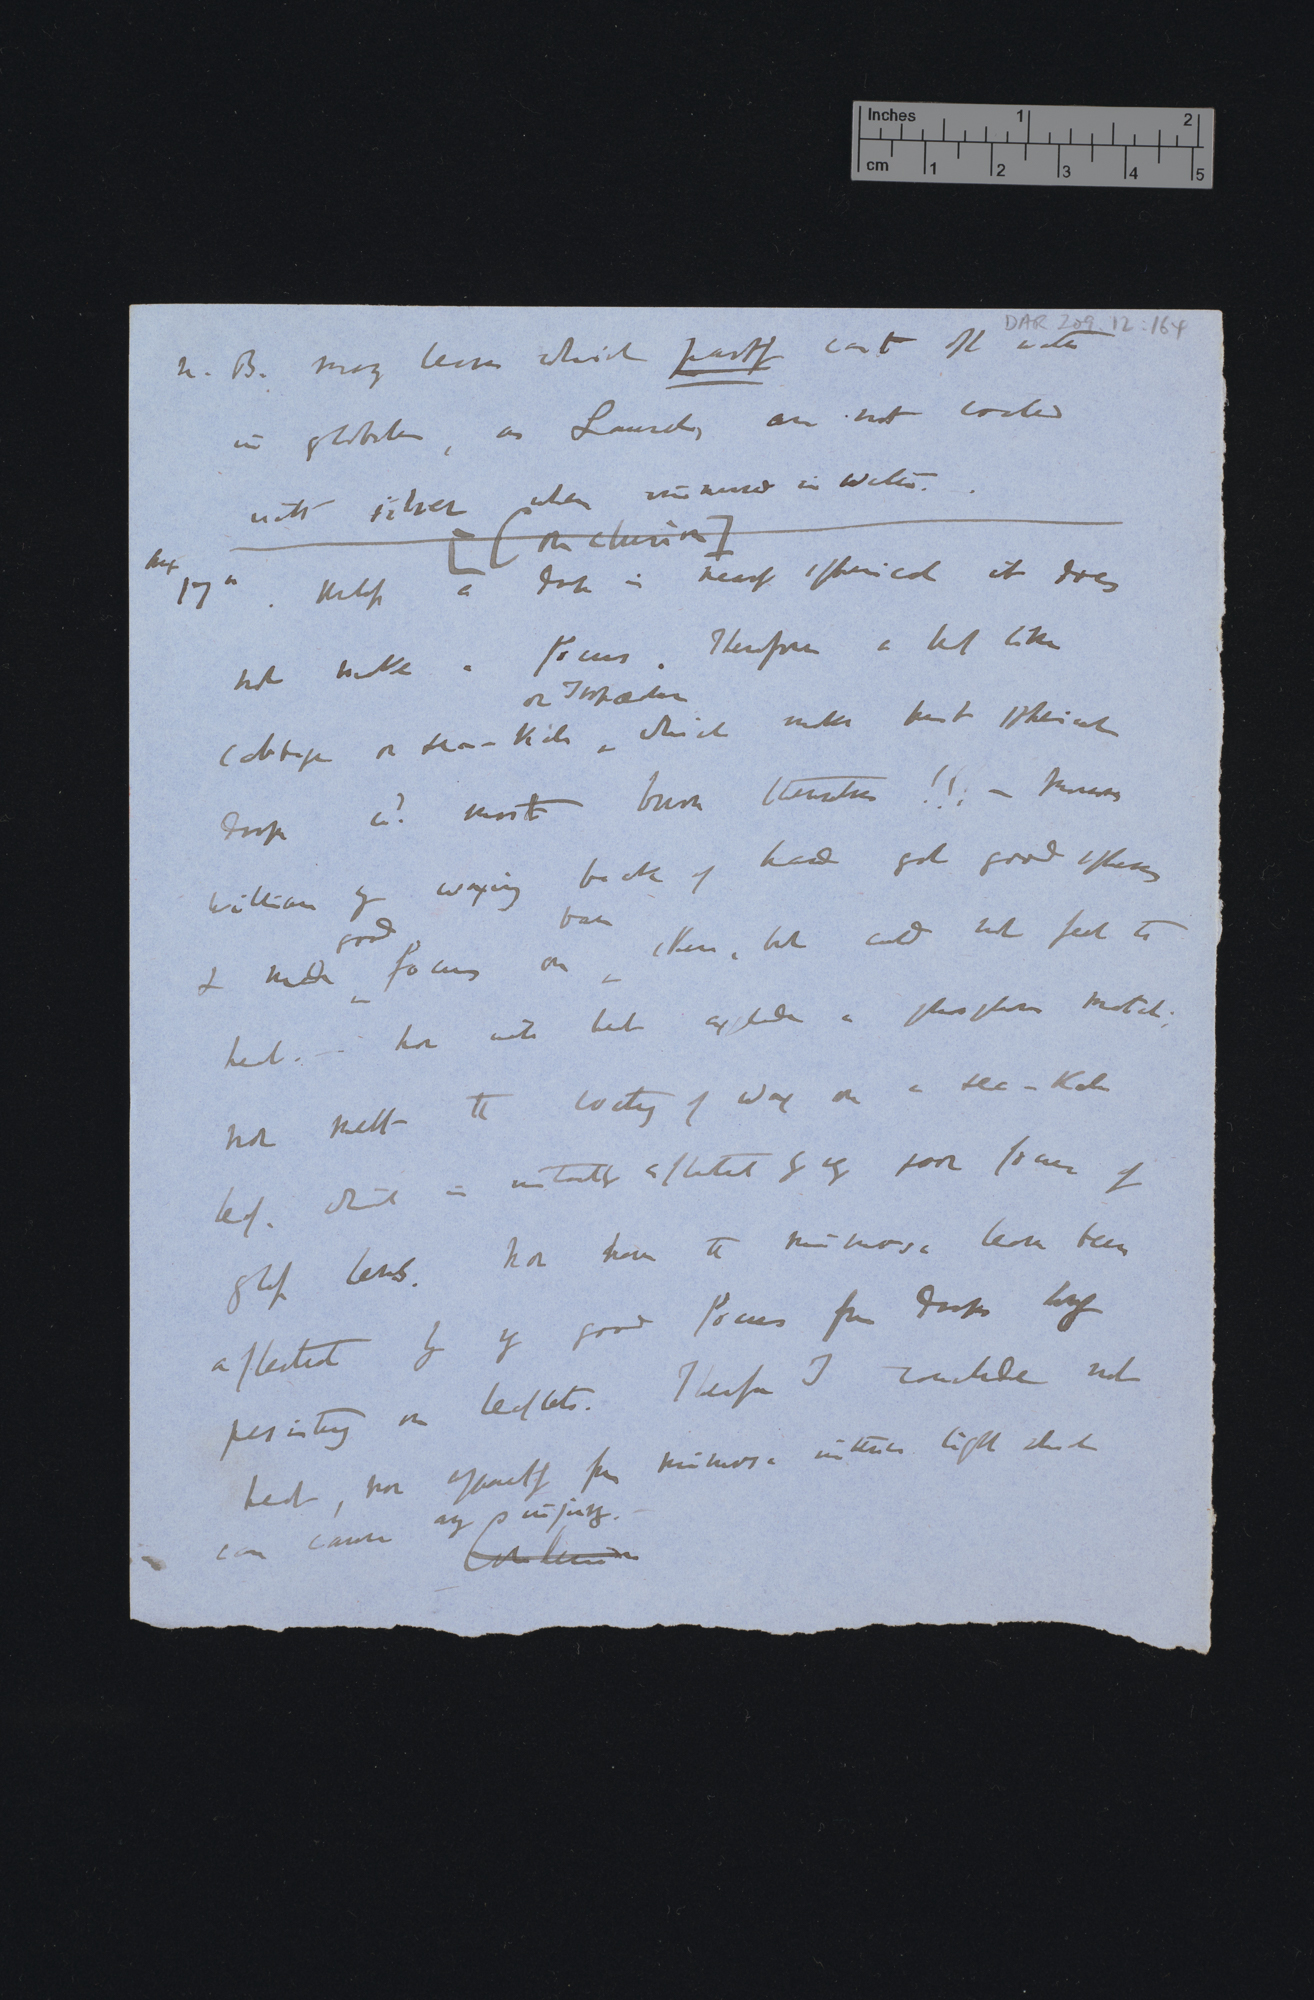 Inches 1 2
cm 1 2 3 4 5
DAR 209.12:164
N.B. many leaves which partly cast off water
in globules, as Laurels, are not coated
with silver when immersed in water.
[Conclusion]
Aug 17th. Unless a drop is nearly spherical it does
not make a focus. Therefore a leaf like
or Tropæolum
cabbage or sea-Kale, which makes best spherical
drops must burn themselves!!! —
William by waxing back of hand got good spheres
good bare
& made focus on skin, but could not feel the
heat. — Nor will heat explode a phosphorus match;
nor melt the coating of wax on a sea-Kale
leaf. which is instantly affected by my poor focus of
glass lens. Nor have the mimosa leaves been
affected by my good focus from drops long
persisting on leaflets. Therefore I conclude not
heat, nor apparently from mimosa intense light which
can cause any injury. —
Conclusion